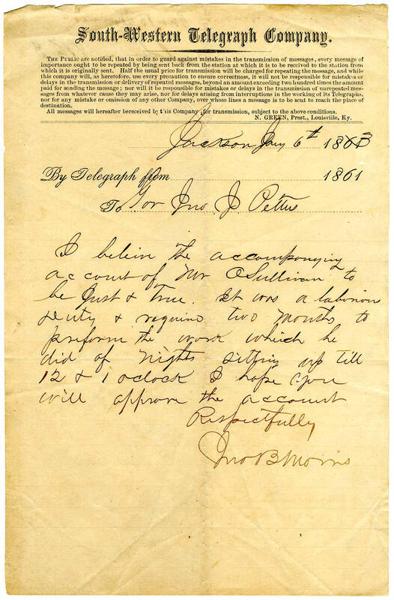 South-Western Telegraph Company.
THE PUBLIC are notified, that in order to guard against mistakes in the transmission of messages, every message of
importance ought to be repeated by being sent back from the station at which it is to be received to the station from
which it is originally sent. Half the usual price for transmission will be charged for repeating the message, and while
this company will, as heretofore, use every precaution to ensure correctness, it will not be responsible for mistakes or
delays in the transmission or delivery of repeated messages, beyond an amount exceeding two hundred times the amount
paid for sending the message; nor will it be responsible for mistakes or delays in the transmission of unrepeated messages
from whatever cause they may arise, nor for delays arising from interruptions in the working of its Telegraphs,
nor for any mistake or omission of any other Company, over whose lines a message is to be sent to reach the place of
destination.
All messages will hereafter be received by this Company for transmission, subject to the above conditions.
N. GREEN, Prest., Louisville, Ky.
Jackson Jany 6th 1863
By Telegraph from 1861
To Gov Jno J Pettus
I believe the accompanying
account of Mr OSullivan to
be Just & True. It was a laborious
duty & required two months to
preform the work which he
did of nights sitting up till
12 & 1 oclock I hope you
will approve the account
Respectfully
Jno B Morris